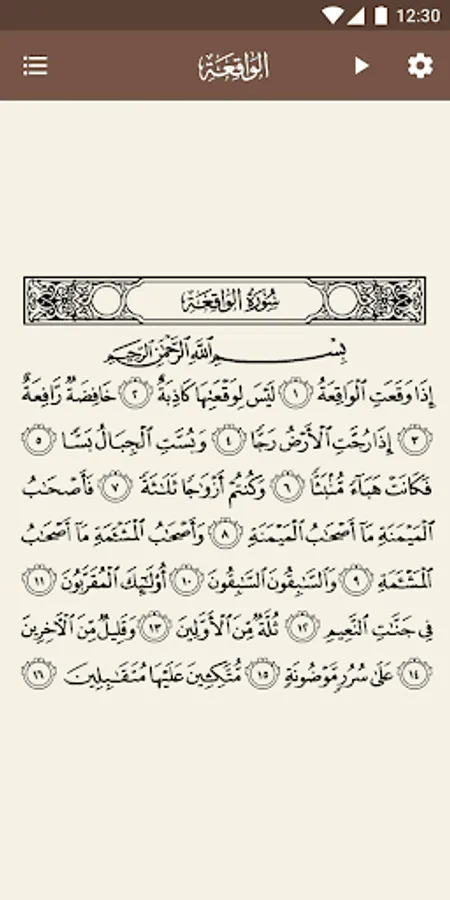 12:30
الواقعة
سُورَةُ الوَاقِعَة
بِسْمِ اللَّهِ الرَّحْمَٰنِ الرَّحِيمِ
إِذَا وَقَعَتِ الْوَاقِعَةُ ١ لَيْسَ لِوَقْعَتِهَا كَاذِبَةٌ ٢ خَافِضَةٌ رَّافِعَةٌ
٣ إِذَا رُجَّتِ الْأَرْضُ رَجًّا ٤ وَبُسَّتِ الْجِبَالُ بَسًّا ٥
فَكَانَتْ هَبَاءً مُّنبَثًّا ٦ وَكُنتُمْ أَزْوَاجًا ثَلَٰثَةً ٧ فَأَصْحَٰبُ
الْمَيْمَنَةِ مَا أَصْحَٰبُ الْمَيْمَنَةِ ٨ وَأَصْحَٰبُ الْمَشْـَٔمَةِ مَا أَصْحَٰبُ
الْمَشْـَٔمَةِ ٩ وَالسَّٰبِقُونَ السَّٰبِقُونَ ١٠ أُولَٰئِكَ الْمُقَرَّبُونَ ١١
فِي جَنَّٰتِ النَّعِيمِ ١٢ ثُلَّةٌ مِّنَ الْأَوَّلِينَ ١٣ وَقَلِيلٌ مِّنَ الْآخِرِينَ
١٤ عَلَىٰ سُرُرٍ مَّوْضُونَةٍ ١٥ مُّتَّكِـِٔينَ عَلَيْهَا مُتَقَٰبِلِينَ ١٦